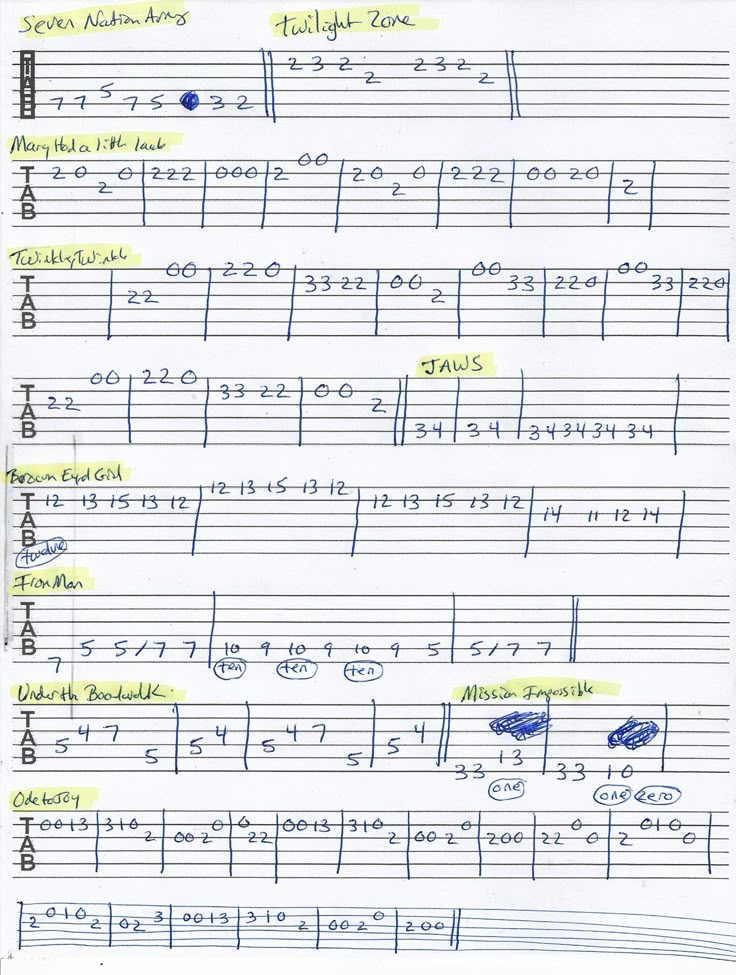 Seven Nation Army Twilight Zone
TAB
5 2 3 2 2 2 3 2 2
7 7 7 5 3 2
Mary Had a little lamb
TAB 2 0 2 0 2 2 2 0 0 0 2 0 0 2 0 2 0 2 2 2 0 0 2 0 2
Twinkle, Twinkle
TAB 2 2 0 0 2 2 0 3 3 2 2 0 0 2 0 0 3 3 2 2 0 0 0 3 3 2 2 0
JAWS
TAB 2 2 0 0 2 2 0 3 3 2 2 0 0 2 3 4 3 4 3 4 3 4 3 4 3 4
Brown Eyed Girl
TAB 12 13 15 13 12 12 13 15 13 12 12 13 15 13 12 14 11 12 14
twelve
Iron Man
TAB 7 5 5/7 7 10 9 10 9 10 9 5 5/7 7
ten ten ten
Under the Boardwalk Mission Impossible
TAB 5 4 7 5 5 4 5 4 7 5 5 4 3 3 1 3 3 3 1 0
one one zero
Ode to Joy
TAB 0 0 1 3 3 1 0 2 0 0 2 0 0 2 2 0 0 1 3 3 1 0 2 0 0 2 0 2 0 0 2 2 0 0 2 0 1 0 0
2 0 1 0 2 0 2 3 0 0 1 3 3 1 0 2 0 0 2 0 2 0 0